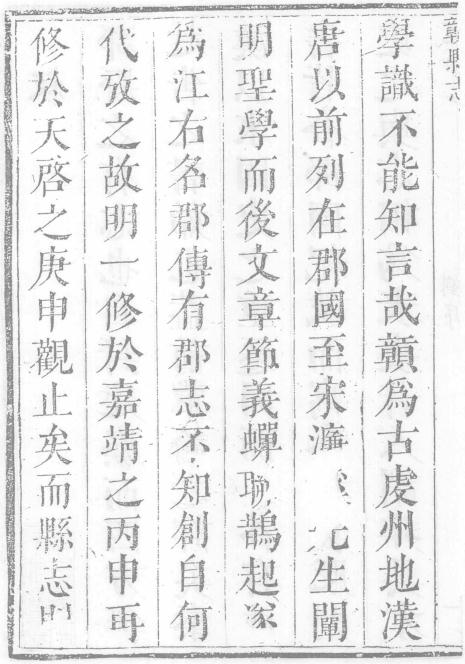 贛縣志
學識不能知言哉贑爲古虔州地漢
唐以前列在郡國至宋濂 生闡
明聖學而後文章節義蟬聯鵲起遂
爲江右名郡傳有郡志不知創自何
代攷之故明一修於嘉靖之丙申再
修於天啓之庚申觀止矣而縣志